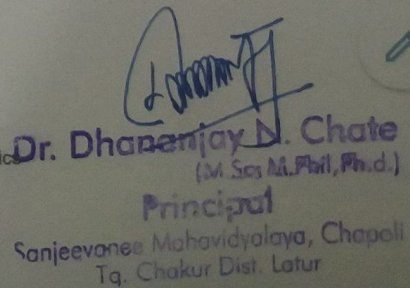 Dr. Dhananjay N. Chate
(M.Sc., M.Phil, Ph.d.)
Principal
Sanjeevanee Mahavidyalaya, Chapoli
Tq. Chakur Dist. Latur